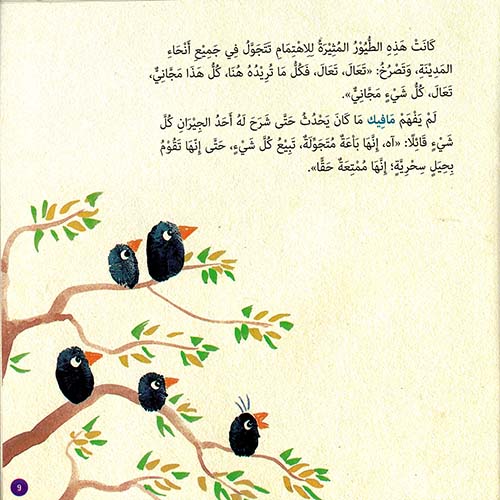 كَانَتْ هَذِهِ الطُّيُوْرُ المُثِيْرَةُ لِلاهْتِمَامِ تَتَجَوَّلُ فِي جَمِيْعِ أَنْحَاءِ
المَدِيْنَةِ، وَتَصْرُخُ: «تَعَالَ، تَعَالَ، فَكُلُّ مَا تُرِيْدُهُ هُنَا، كُلُّ هَذَا مَجَّانِيٌّ،
تَعَالَ، كُلُّ شَيْءٍ مَجَّانِيٌّ».
لَمْ يَفْهَمْ مَافِيك مَا كَانَ يَحْدُثُ حَتَّى شَرَحَ لَهُ أَحَدُ الجِيْرَانِ كُلَّ
شَيْءٍ قَائِلًا: «آه، إِنَّهَا بَاعَةٌ مُتَجَوِّلَةٌ، تَبِيْعُ كُلَّ شَيْءٍ، حَتَّى إِنَّهَا تَقُوْمُ
بِحِيَلٍ سِحْرِيَّةٍ؛ إِنَّهَا مُمْتِعَةٌ حَقًّا».
9